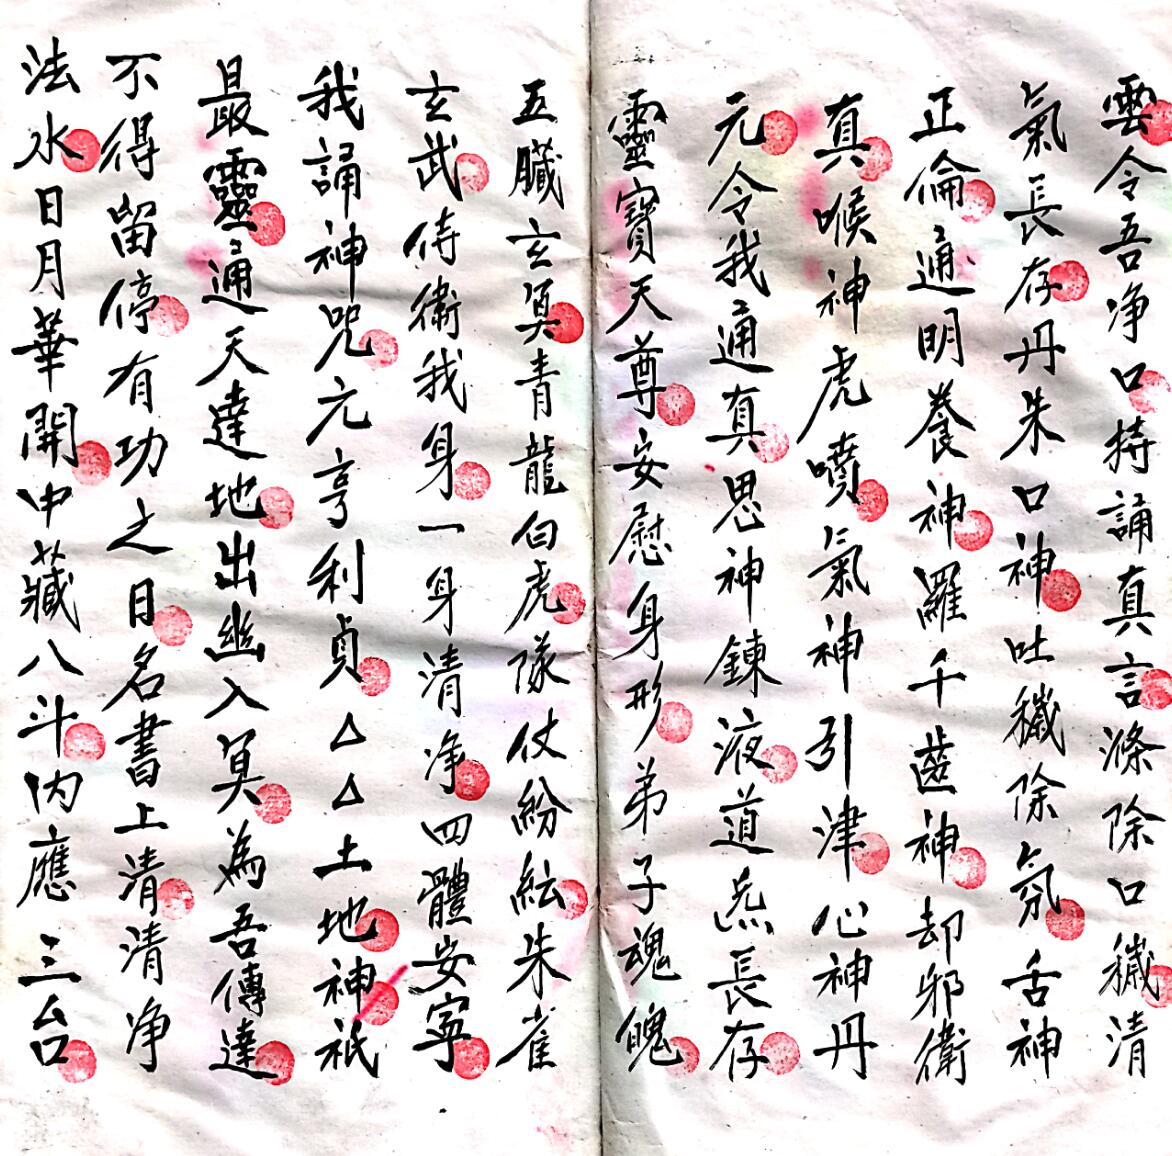 雲令吾净口持誦真言滌除口穢清
氣長存丹朱口神吐穢除氛舌神
正倫通明養神羅千齒神却邪衛
真喉神虎噴氣神引津心神丹
元令我通真思神鍊液道炁長存
靈寶天尊安慰身形弟子魂魄
五臟玄冥青龍白虎隊仗紛紜朱雀
玄武侍衛我身一身清净四體安寧
我誦神咒元亨利貞△△土地神祇
最靈通天達地出幽入冥為吾傳達
不得留停有功之日名書上清清净
法水日月華開中藏八斗内應三台